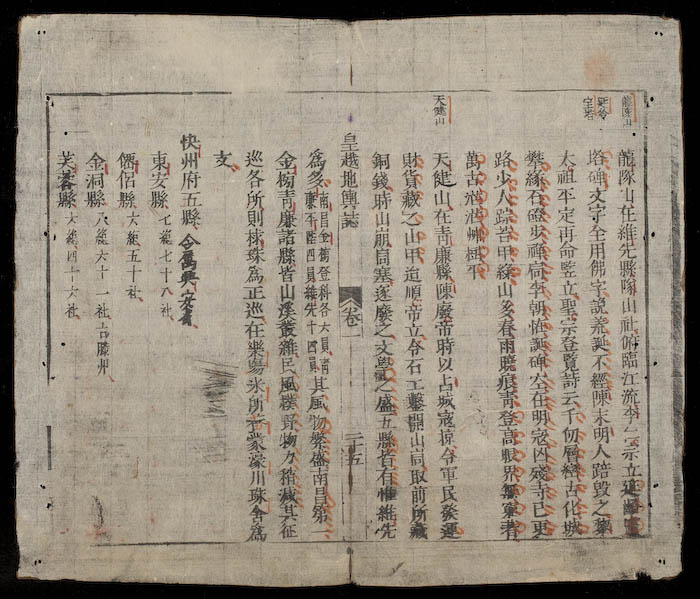 龍隊山
延令
寶塔
天健山
龍隊山在維先縣隊山社俯臨江流李仁宗立延
塔碑文字全用佛字說荒誕不經陳末明人踣毀之黎
太祖平定再命竪立聖宗登覽詩云千仞層巒古化城
攀緣石磴步禪扃李朝怪誕碑空在明寇凶殘寺已更
路少人踪苔甲綠山多春雨曉痕青登高眼界無窮者
萬古洪濛一掃平
天健山在青廉縣陳廢帝時以占城寇掠令軍民發運
財貨藏之山中追順帝立令石工鑿開山峝取前所藏
銅錢時山崩峝塞遂廢之文學之盛五縣皆有惟維先
為多
南昌金榜登科各六員青
廉平陸四員維先十四員
其風物繁盛南昌第一
金榜青廉諸縣皆山溪叢雜民風樸野物力稍減其征
巡各所則樣珠為正巡在樂場米所在蒙濠川珠舍為
支
皇越地輿誌
卷一
二十五
快州府五縣今屬興安省
東安縣七總七十八社
僊侶縣六總五十社
金洞縣八總六十一社古滕州
芙蓉縣六總四十六社